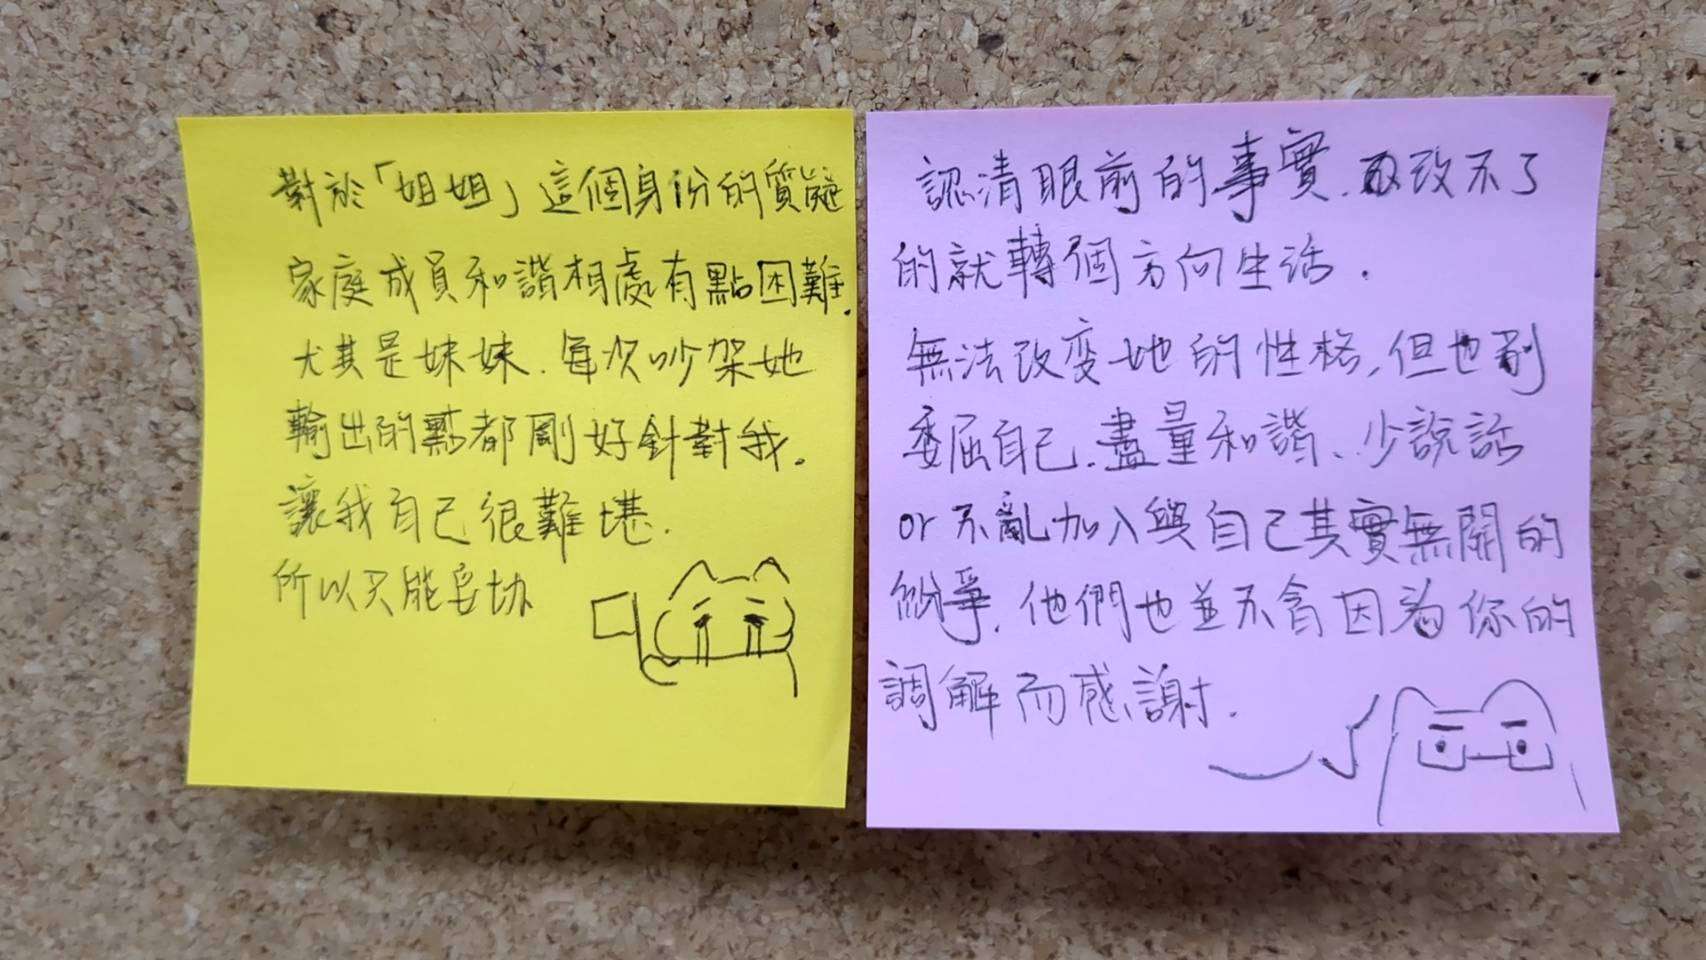 對於「姐姐」這個身份的質疑
家庭成員和諧相處有點困難.
尤其是妹妹.每次吵架她
輸出的點都剛好針對我.
讓我自己很難堪.
所以只能妥协
認清眼前的事實.改不了
的就轉個方向生活.
無法改变她的性格,但也別
委屈自己.盡量和諧、少說話
or 不亂加入與自己其實無關的
紛爭.他們也並不會因為你的
調解而感謝.